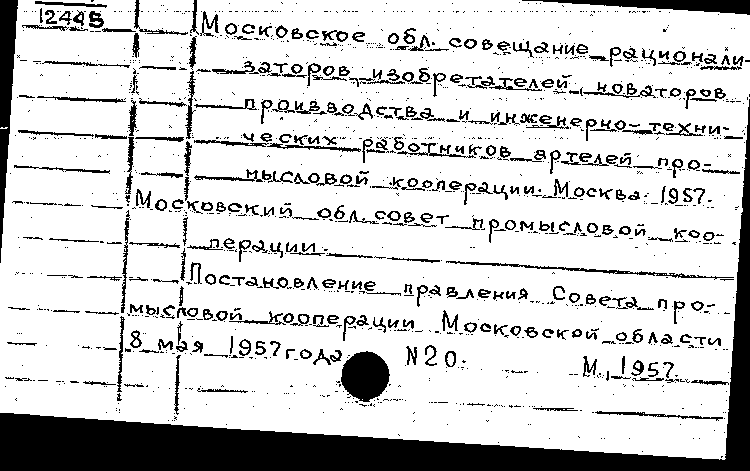 12445
Московское обл. совещание рационали-
заторов, изобретателей, новаторов
производства и инженерно-техни-
ческих работников артелей про-
мысловой кооперации. Москва. 1957.
Московский обл. совет промысловой коо-
перации.
Постановление правления Совета про-
мысловой кооперации Московской области
8 мая 1957 года N20. М., 1957.